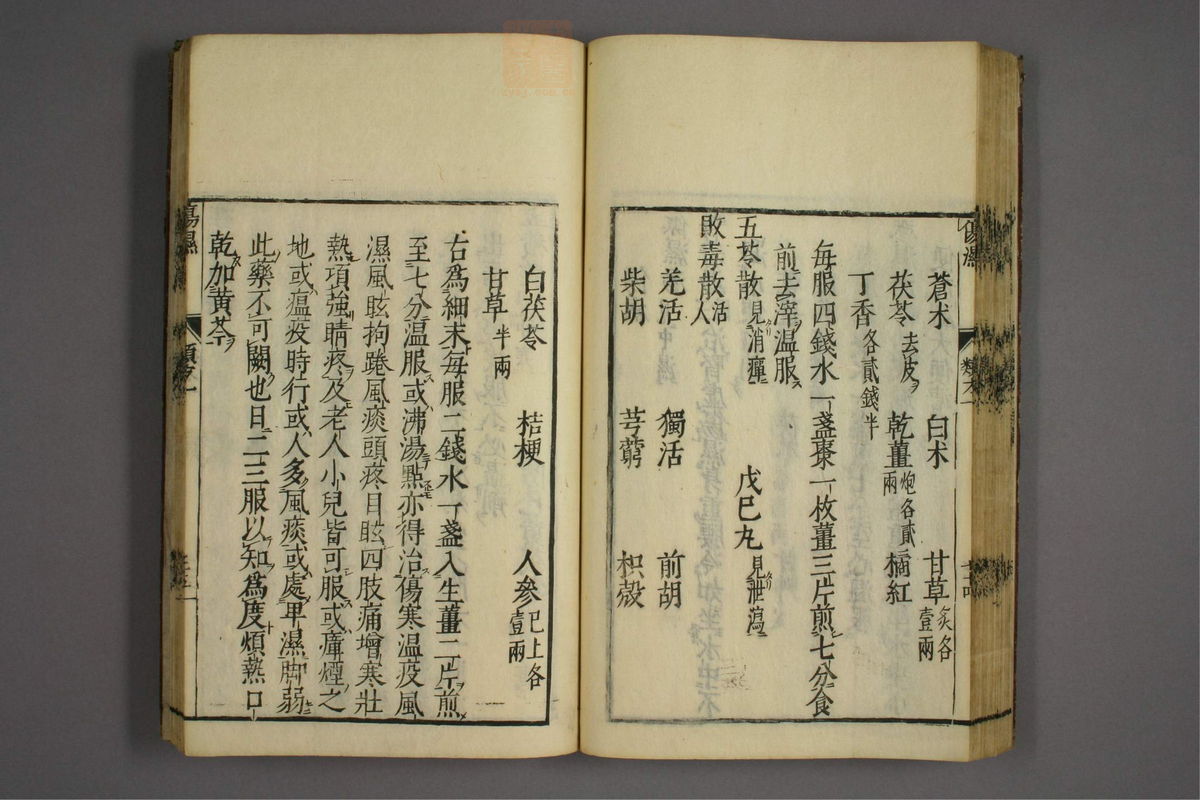 蒼朮 白朮 甘草炙各壹兩
茯苓去皮 乾薑炮各貳兩 橘紅
丁香各貳錢半
每服四錢水一盞棗一枚薑三片煎七分食
前去滓温服
五苓散見消癉 戊巳丸見泄瀉
敗毒散活人
羌活 獨活 前胡
柴胡 芎藭 枳殼
白茯苓 桔梗 人參巳上各壹兩
甘草半兩
右爲細末每服二錢水一盞入生薑二片煎
至七分温服或沸湯點亦得治傷寒温疫風
濕風眩拘踡風痰頭疼目眩四肢痛增寒壯
熱項強睛疼及老人小兒皆可服或瘴煙之
地或瘟疫時行或人多風痰或處卑濕脚弱
此藥不可闕也日二三服以知爲度煩熱口
乾加黄芩
傷濕